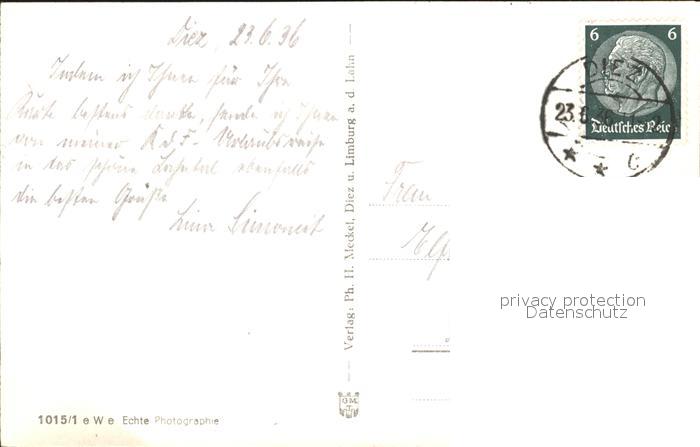 Diez, 23.6.36
Indem ich Ihnen für Ihre
Karte bestens danke, sende ich Ihnen
von meiner K.d.F.-Urlaubsreise
in das schöne Lahntal ebenfalls
die besten Grüße
Lina Simoneit
1015/1 e W e Echte Photographie
Verlag: Ph. H. Meckel, Diez u. Limburg a. d. Lahn
6 6
Deutsches Reich
DIEZ
23.6.36
Frau
privacy protection
Datenschutz